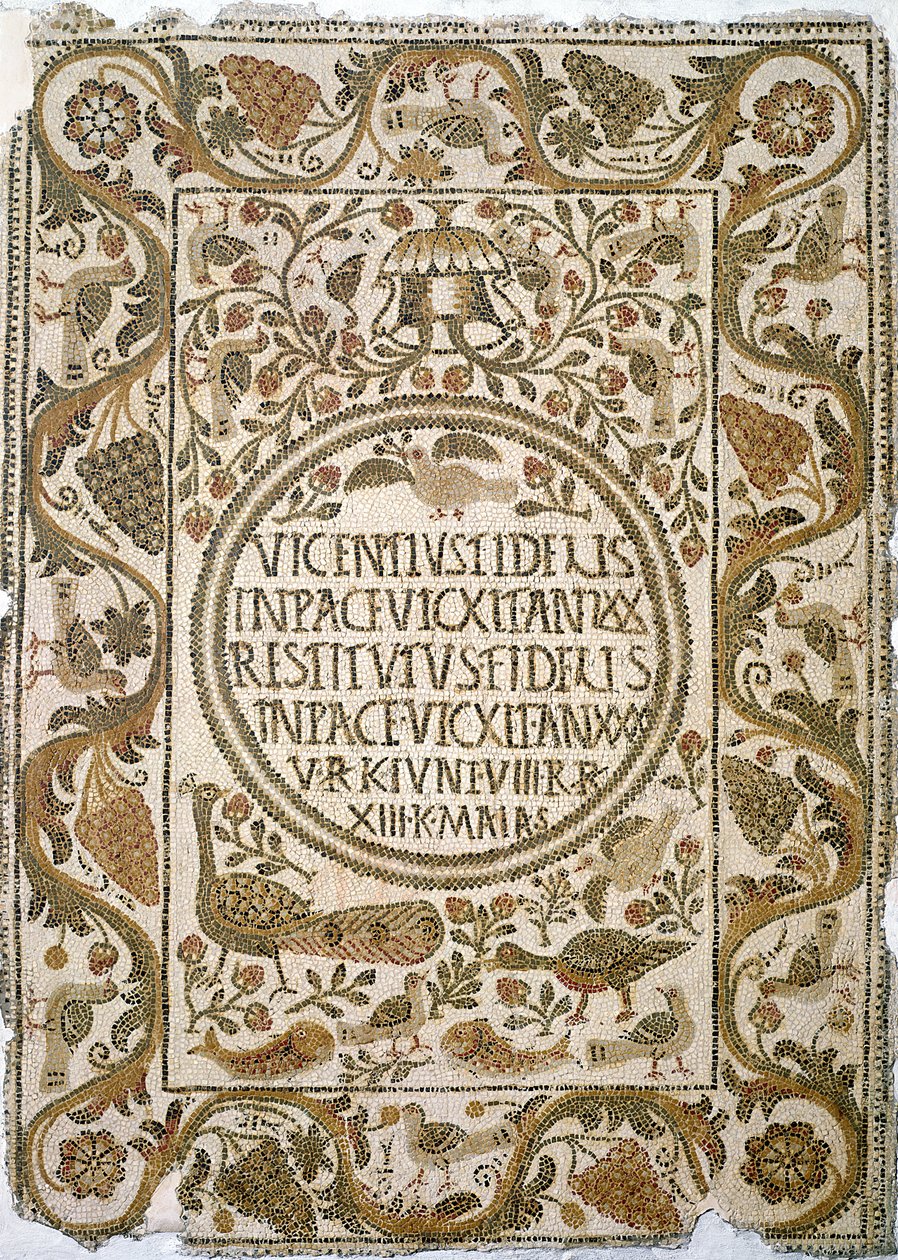 VICENTIVS FIDELIS
IN PACE VICXIT AN
RESTITVTVS FIDELIS
IN PACE VICXIT AN
VIII R R
XIII·K·MAIAS